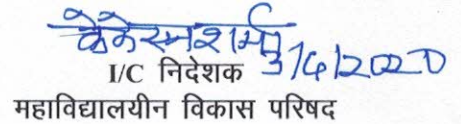 3/6/2020
I/C निदेशक
महाविद्यालयीन विकास परिषद